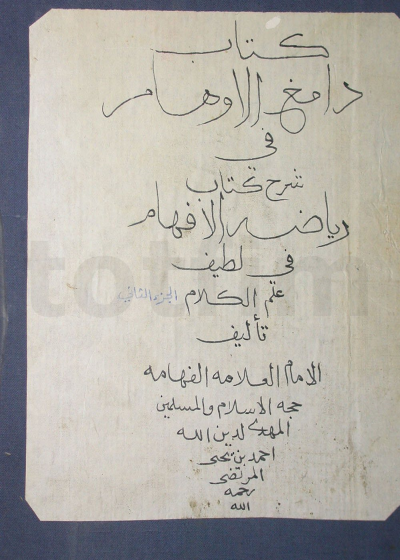 كتاب
دامغ الاوهام
في
شرح كتاب
رياضه الافهام
في لطيف
علم الكلام الجزء الثاني
تأليف
الامام العلامه الفهامه
حجه الاسلام والمسلمين
المهدي لدين الله
احمد بن يحيى
المرتضى
رحمه
الله